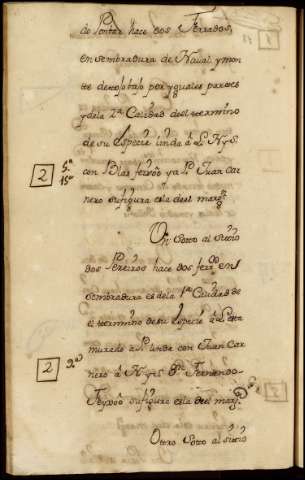 de Pontar hace dos Ferrados,
en sembradura de Naval, y mon
te detojo tab por yguales partes
y dela 2ª Calidad deel termino
de su especie linda á L. N. y S.
con Blas feixóo y a P. Juan Car
nero su figura es la deel margⁿ
2
Ottro Sotto al sitio
dos Pereiros hace dos ferrᵈᵒ en
sembradura es dela 1ª Calidad de
el termino de su especie á L. está
murado a P. linda con Juan Car
nero á N. y S. Dⁿ Fernando
Feyxóo su figura es la deel margⁿ
2
Ottro Sotto al sitio